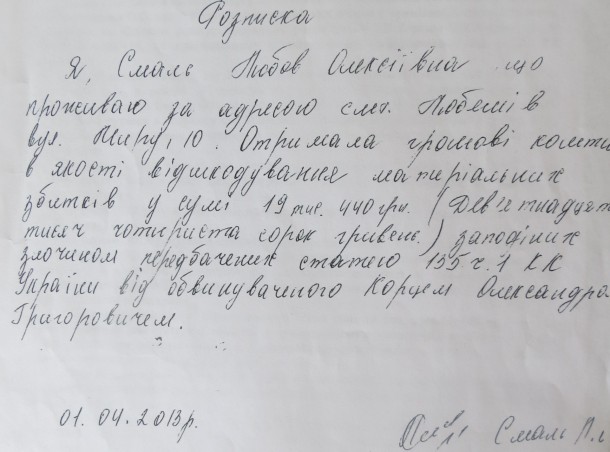 Розписка
Я, Смаль Любов Олексіївна що
проживаю за адресою смт. Любешів
вул. Миру, 10. Отримала грошові кошти
в якості відшкодування матеріальних
збитків у сумі 19 тис. 440 грн. (Дев'ятнадцят
тисяч чотириста сорок гривень.) заподіяних
злочином передбачених статею 135 ч. 1 КК
України від обвинуваченого Корцем Олександро
Григоровичем.
01. 04. 2013 р.
Смаль Л.